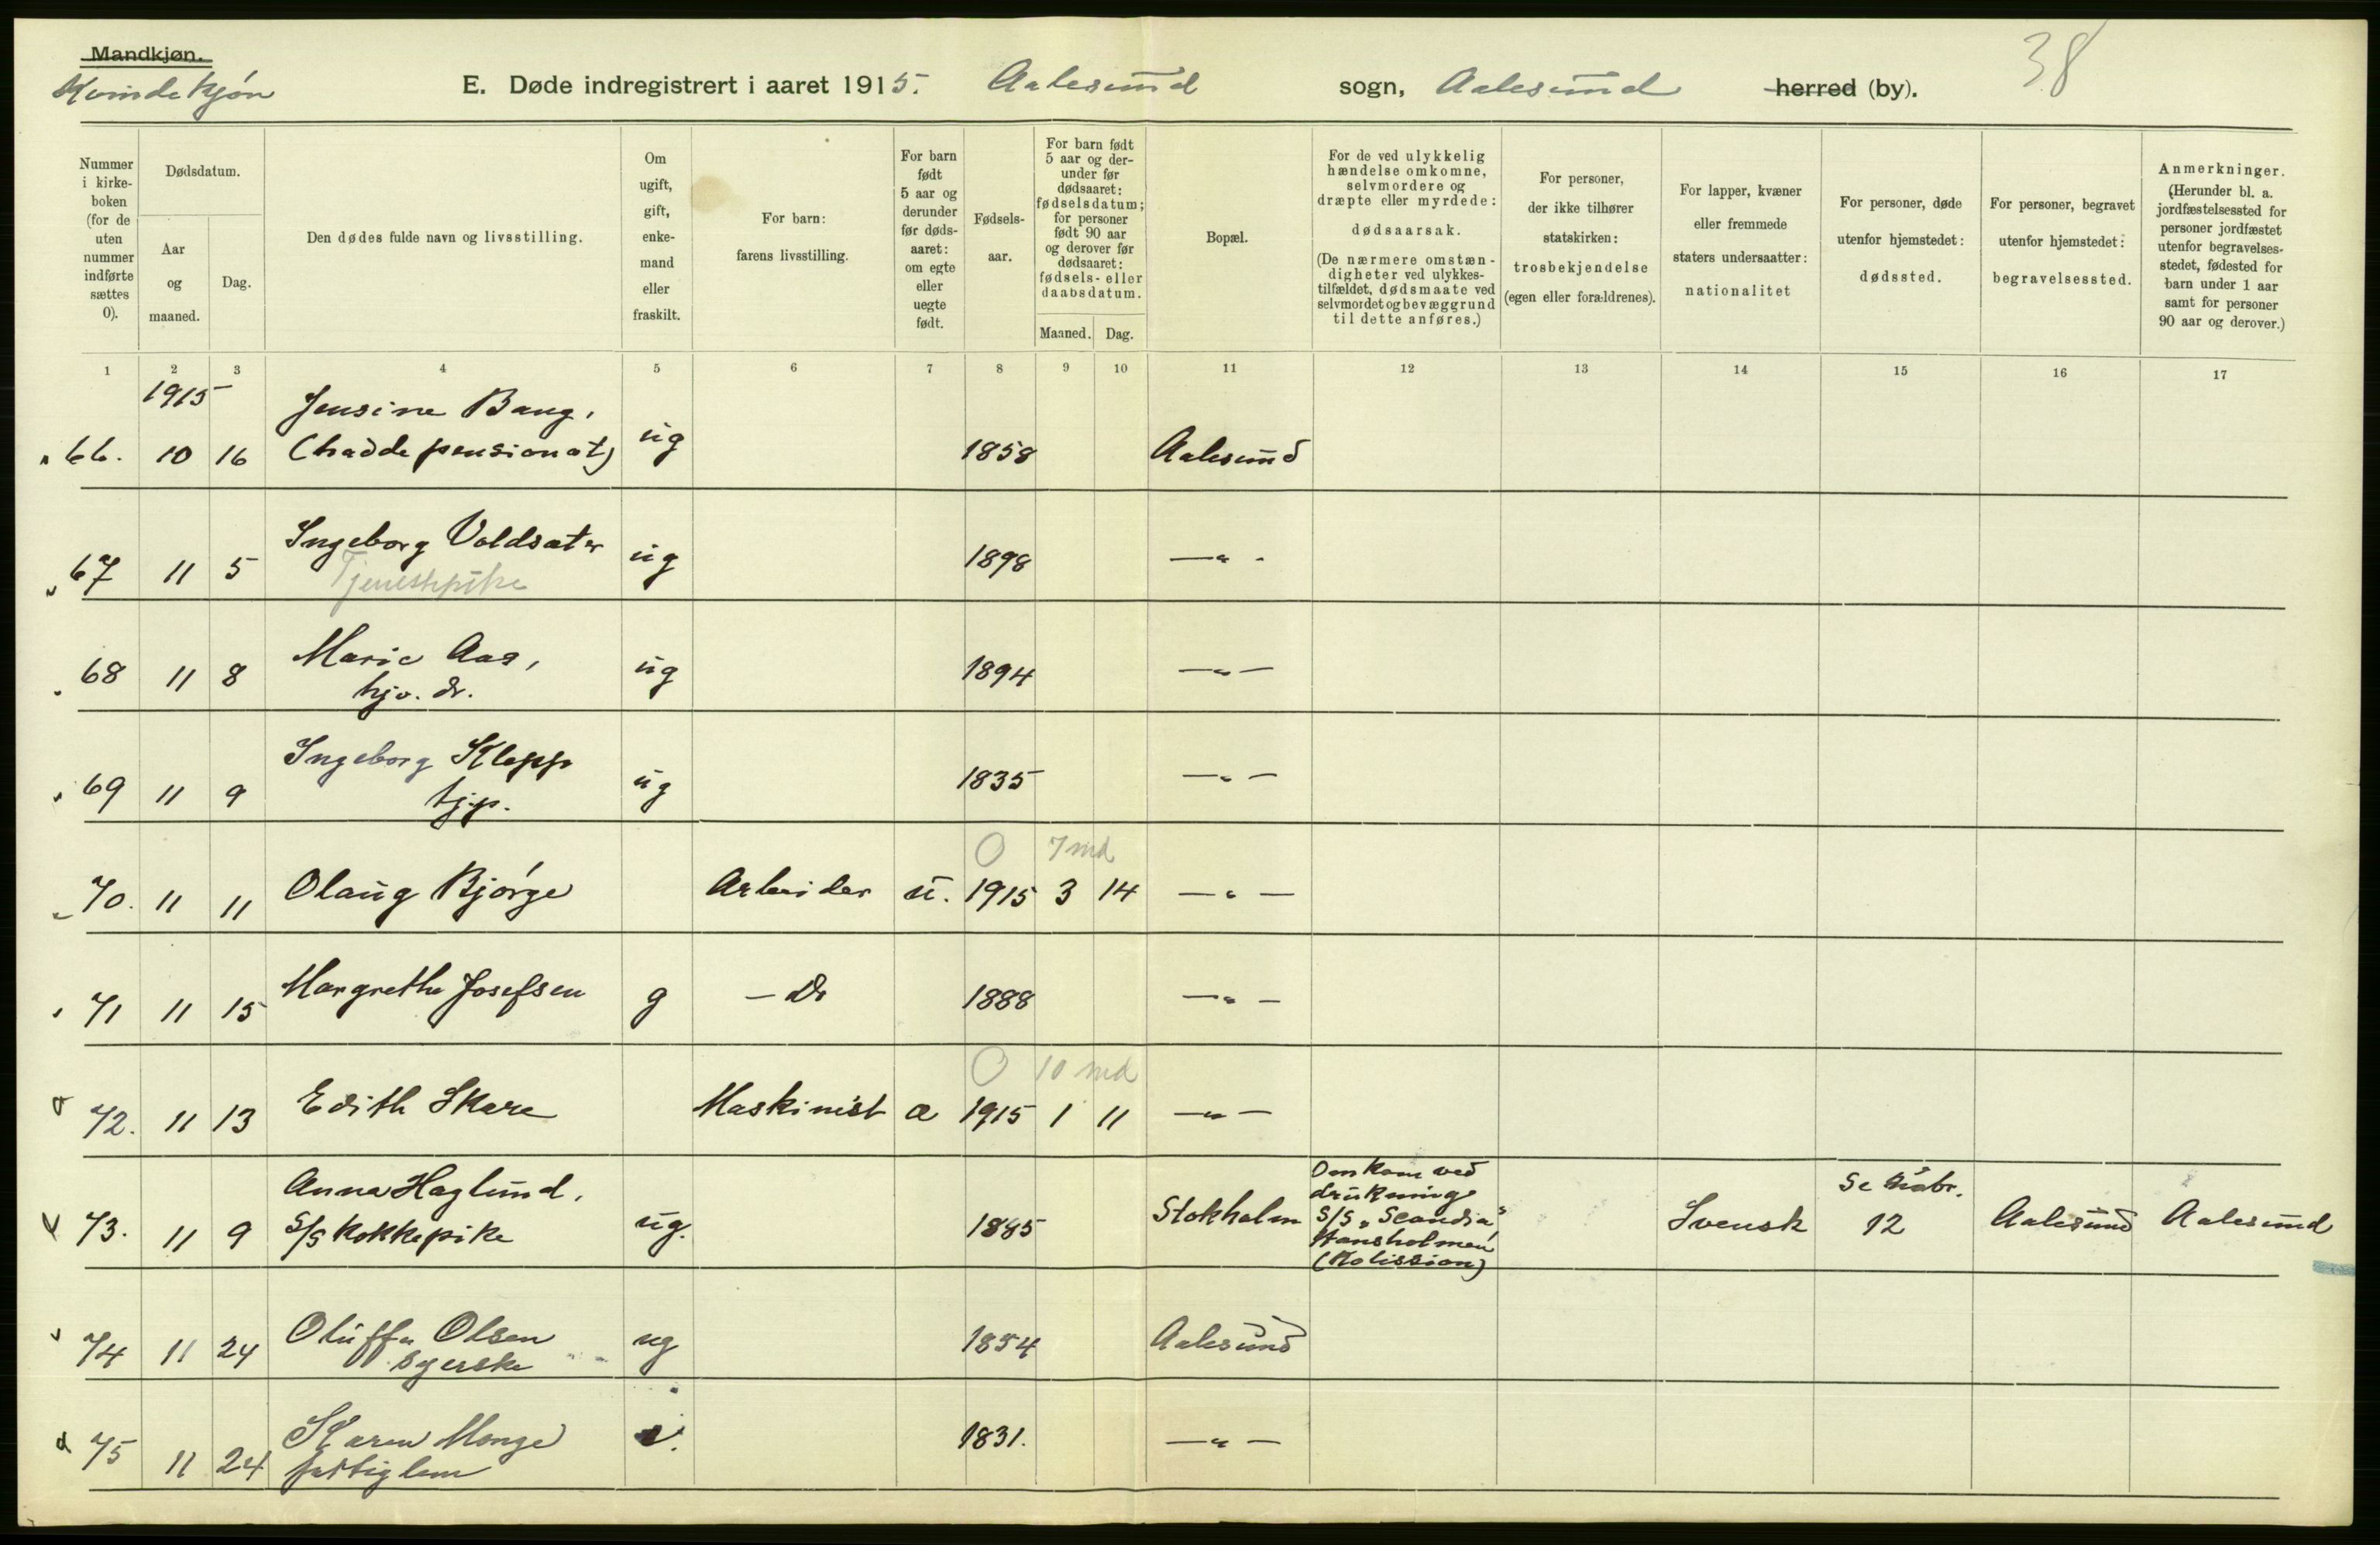 Mandkjøn.
Kvindekjøn
E. Døde indregistrert i aaret 1915. Aalesund sogn, Aalesund herred (by).
38
Nummer
i kirke-
boken
(for de
uten
nummer
indførte
sættes
0).
Dødsdatum.
Aar
og
maaned.
Dag.
Den dødes fulde navn og livsstilling.
Om
ugift,
gift,
enke-
mand
eller
fraskilt.
For barn:
farens livsstilling.
For barn
født
5 aar og
derunder
før døds-
aaret:
om egte
eller
uegte
født.
Fødsels-
aar.
For barn født
5 aar og der-
under før
dødsaaret:
fødselsdatum;
for personer
født 90 aar
og derover før
dødsaaret:
fødsels- eller
daabsdatum.
Maaned.
Dag.
Bopæl.
For de ved ulykkelig
hændelse omkomne,
selvmordere og
dræpte eller myrdede:
dødsaarsak.
(De nærmere omstæn-
digheter ved ulykkes-
tilfældet, dødsmaate ved
selvmordet og bevæggrund
til dette anføres.)
For personer,
der ikke tilhører
statskirken:
trosbekjendelse
(egen eller forældrenes).
For lapper, kvæner
eller fremmede
staters undersaatter:
nationalitet
For personer, døde
utenfor hjemstedet:
dødssted.
For personer, begravet
utenfor hjemstedet:
begravelsessted.
Anmerkninger.
(Herunder bl. a.
jordfæstelsessted for
personer jordfæstet
utenfor begravelses-
stedet, fødested for
barn under 1 aar
samt for personer
90 aar og derover.)
1 2 3 4 5 6 7 8 9 10 11 12 13 14 15 16 17
1915
Jensine Bang,
66. 10 16 (hadde pensionat) ug 1858 Aalesund
Ingeborg Voldsæter
67 11 5 ug 1898 —"-
Tjenestepike
Marie Aas,
68 11 8 ug 1894 —"—
hjv. dr.
Ingeborg Klepp
69 11 9 ug 1835 —"—
tjp.
O 7 md
70. 11 11 Olaug Bjørge Arbeider u. 1915 3 14 —"—
71 11 15 Margrethe Josefsen g — Do 1888 —"—
O 10 md
72. 11 13 Edith Skare Maskinist æ 1915 1 11 —"—
Anna Haglund,
73. 11 9 S/S kokkepike ug. 1885 Stokholm
Omkom ved
drukning
S/S "Scandia"
Hansholmen
(Kolission)
Svensk
Se
12
Aalesund Aalesund
74 11 24 Oluffa Olsen ug 1854 Aalesund
syerske
Karen Monge
75 11 24 fattiglem 1831. —"—